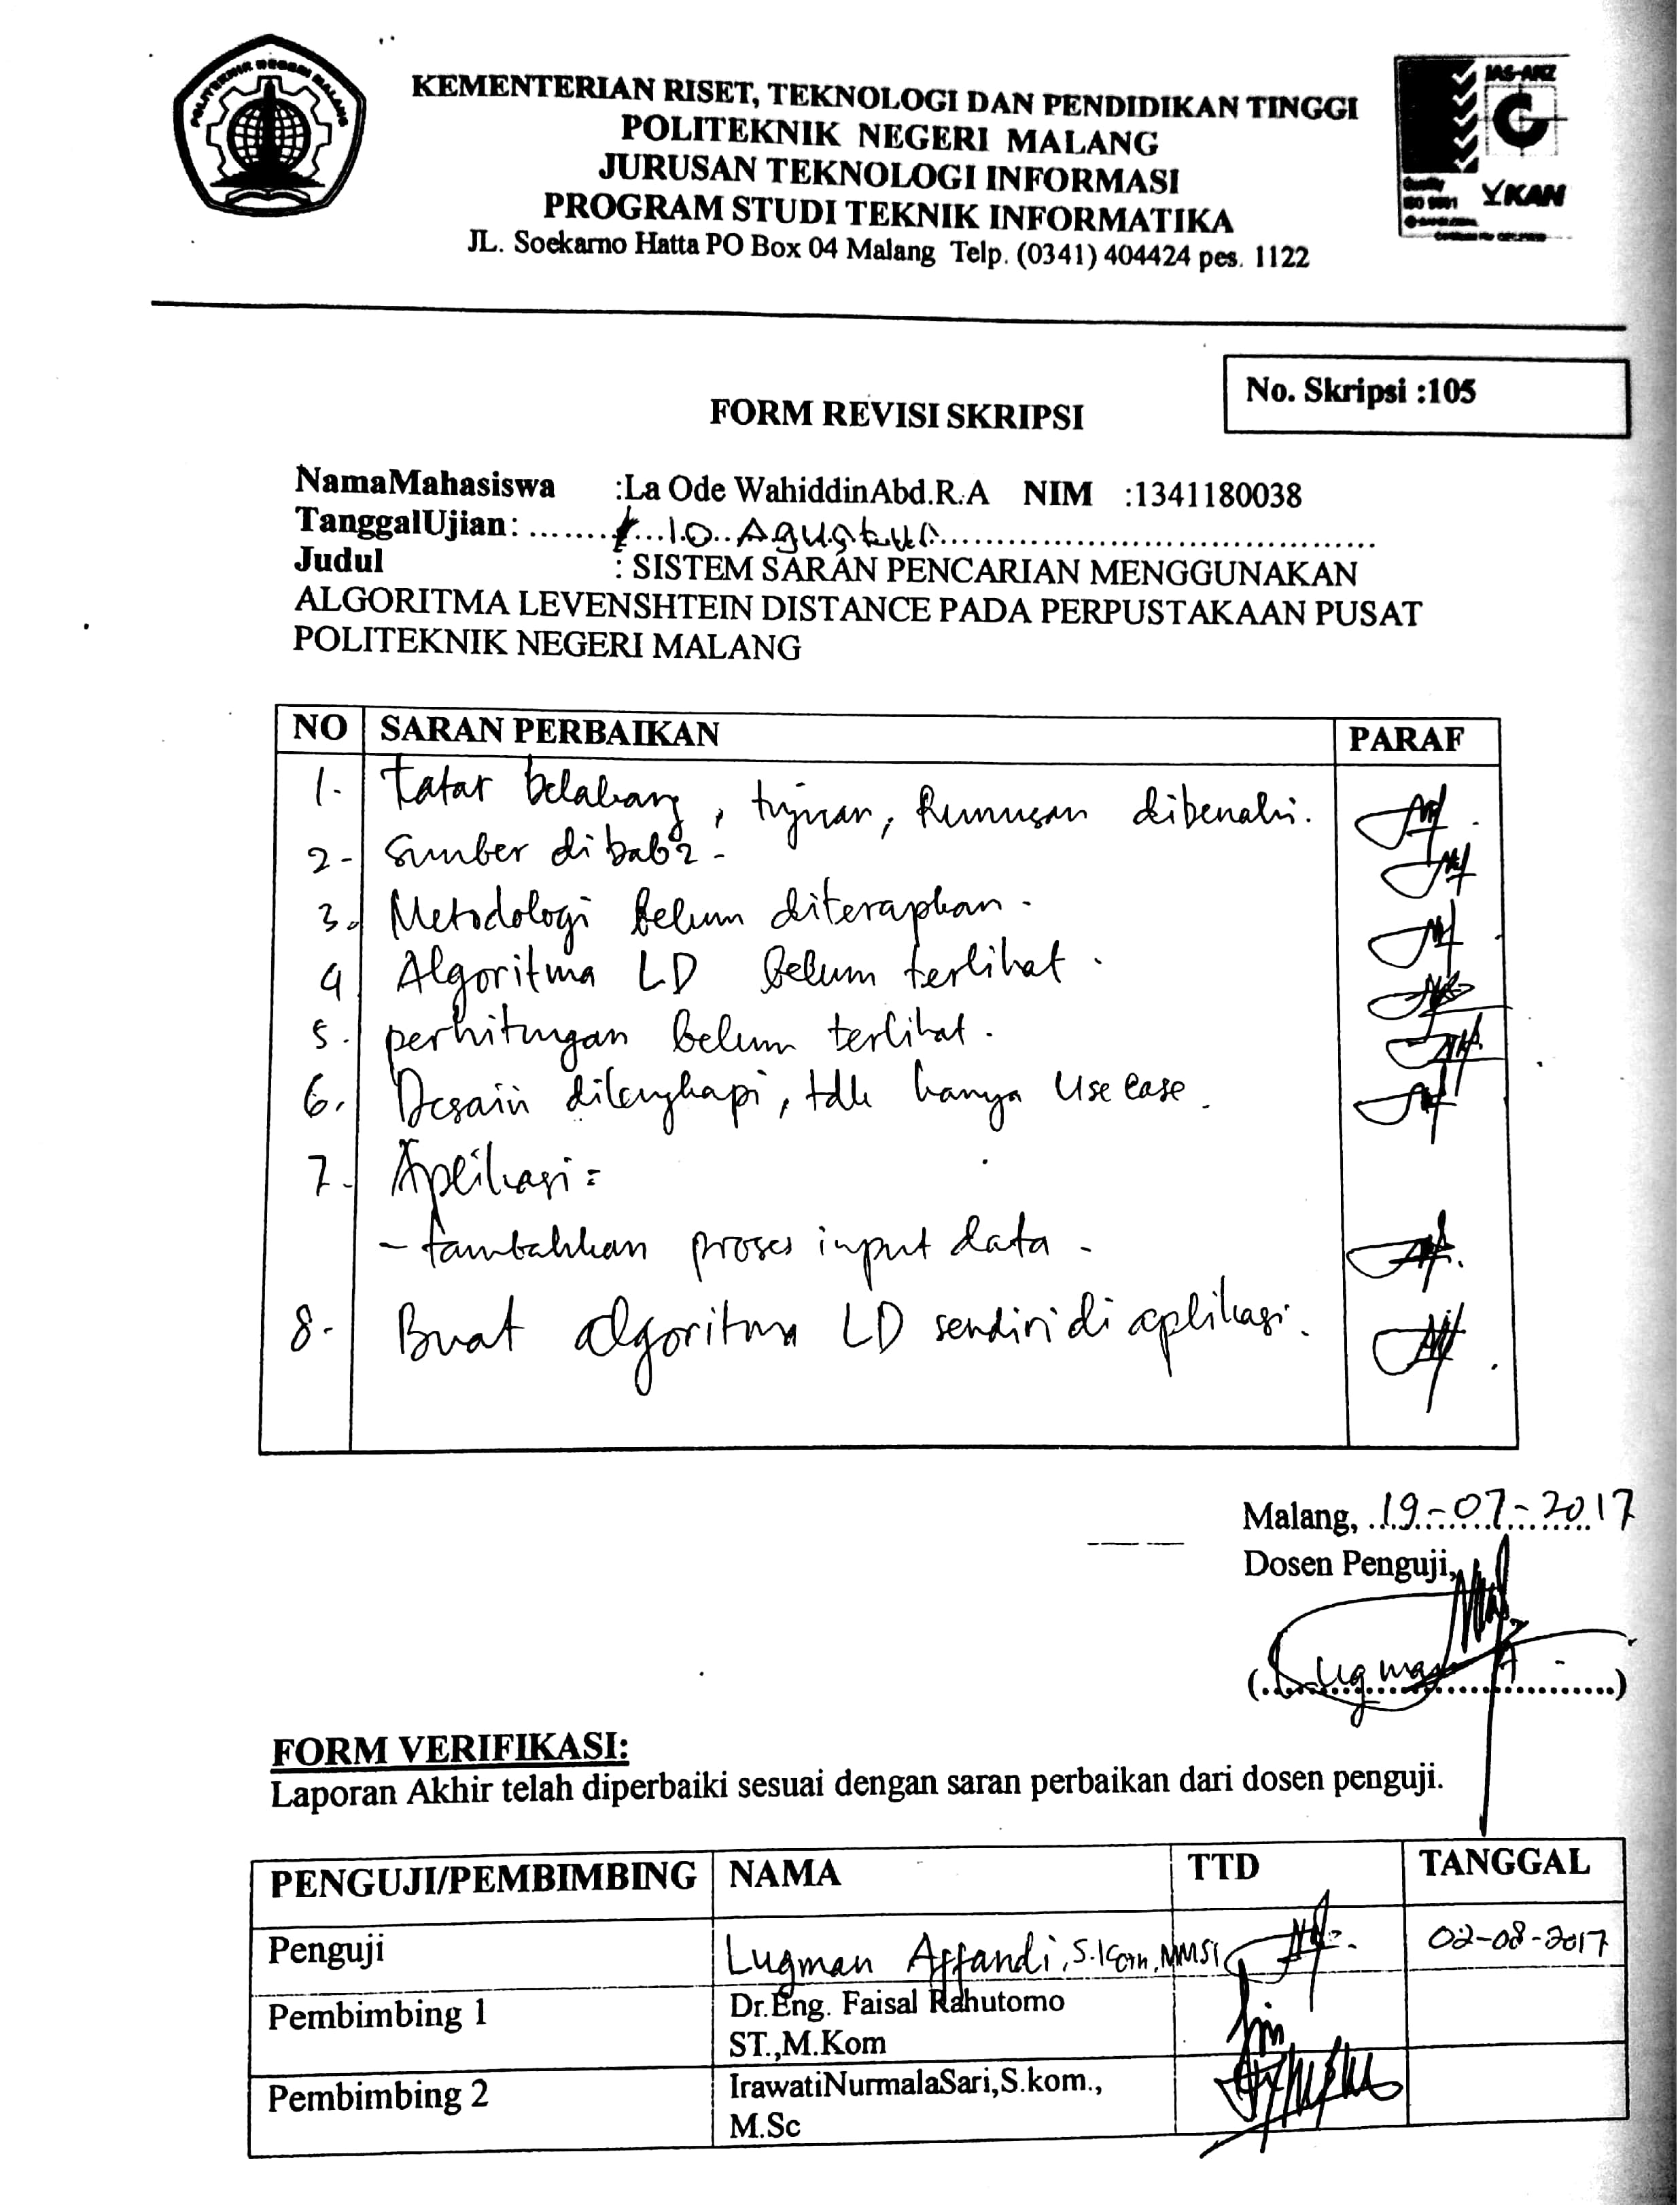 POLITEKNIK NEGERI MALANG
KEMENTERIAN RISET, TEKNOLOGI DAN PENDIDIKAN TINGGI
POLITEKNIK NEGERI MALANG
JURUSAN TEKNOLOGI INFORMASI
PROGRAM STUDI TEKNIK INFORMATIKA
JL. Soekarno Hatta PO Box 04 Malang Telp. (0341) 404424 pes. 1122
JAS-ANZ
Quality
ISO 9001
KAN
No. Skripsi :105
FORM REVISI SKRIPSI
NamaMahasiswa :La Ode WahiddinAbd.R.A NIM :1341180038
TanggalUjian: ........ 10 Agustus ........
Judul : SISTEM SARAN PENCARIAN MENGGUNAKAN
ALGORITMA LEVENSHTEIN DISTANCE PADA PERPUSTAKAAN PUSAT
POLITEKNIK NEGERI MALANG
NO SARAN PERBAIKAN PARAF
1. Latar belakang, tujuan, Rumusan dibenahi.
2- Sumber di bab 2 -
3. Metodologi belum diterapkan.
4 Algoritma LD belum terlihat.
5. perhitungan belum terlihat.
6. Desain dilengkapi, tdk hanya Use Case.
7. Aplikasi:
- tambahkan proses input data -
8- Buat algoritma LD sendiri di aplikasi.
Malang, 19-07-2017
Dosen Penguji,
(Luqman A)
FORM VERIFIKASI:
Laporan Akhir telah diperbaiki sesuai dengan saran perbaikan dari dosen penguji.
PENGUJI/PEMBIMBING NAMA TTD TANGGAL
Penguji Luqman Affandi, S.Kom, MMSI 02-08-2017
Pembimbing 1 Dr.Eng. Faisal Rahutomo
ST.,M.Kom
Pembimbing 2 IrawatiNurmalaSari,S.kom.,
M.Sc